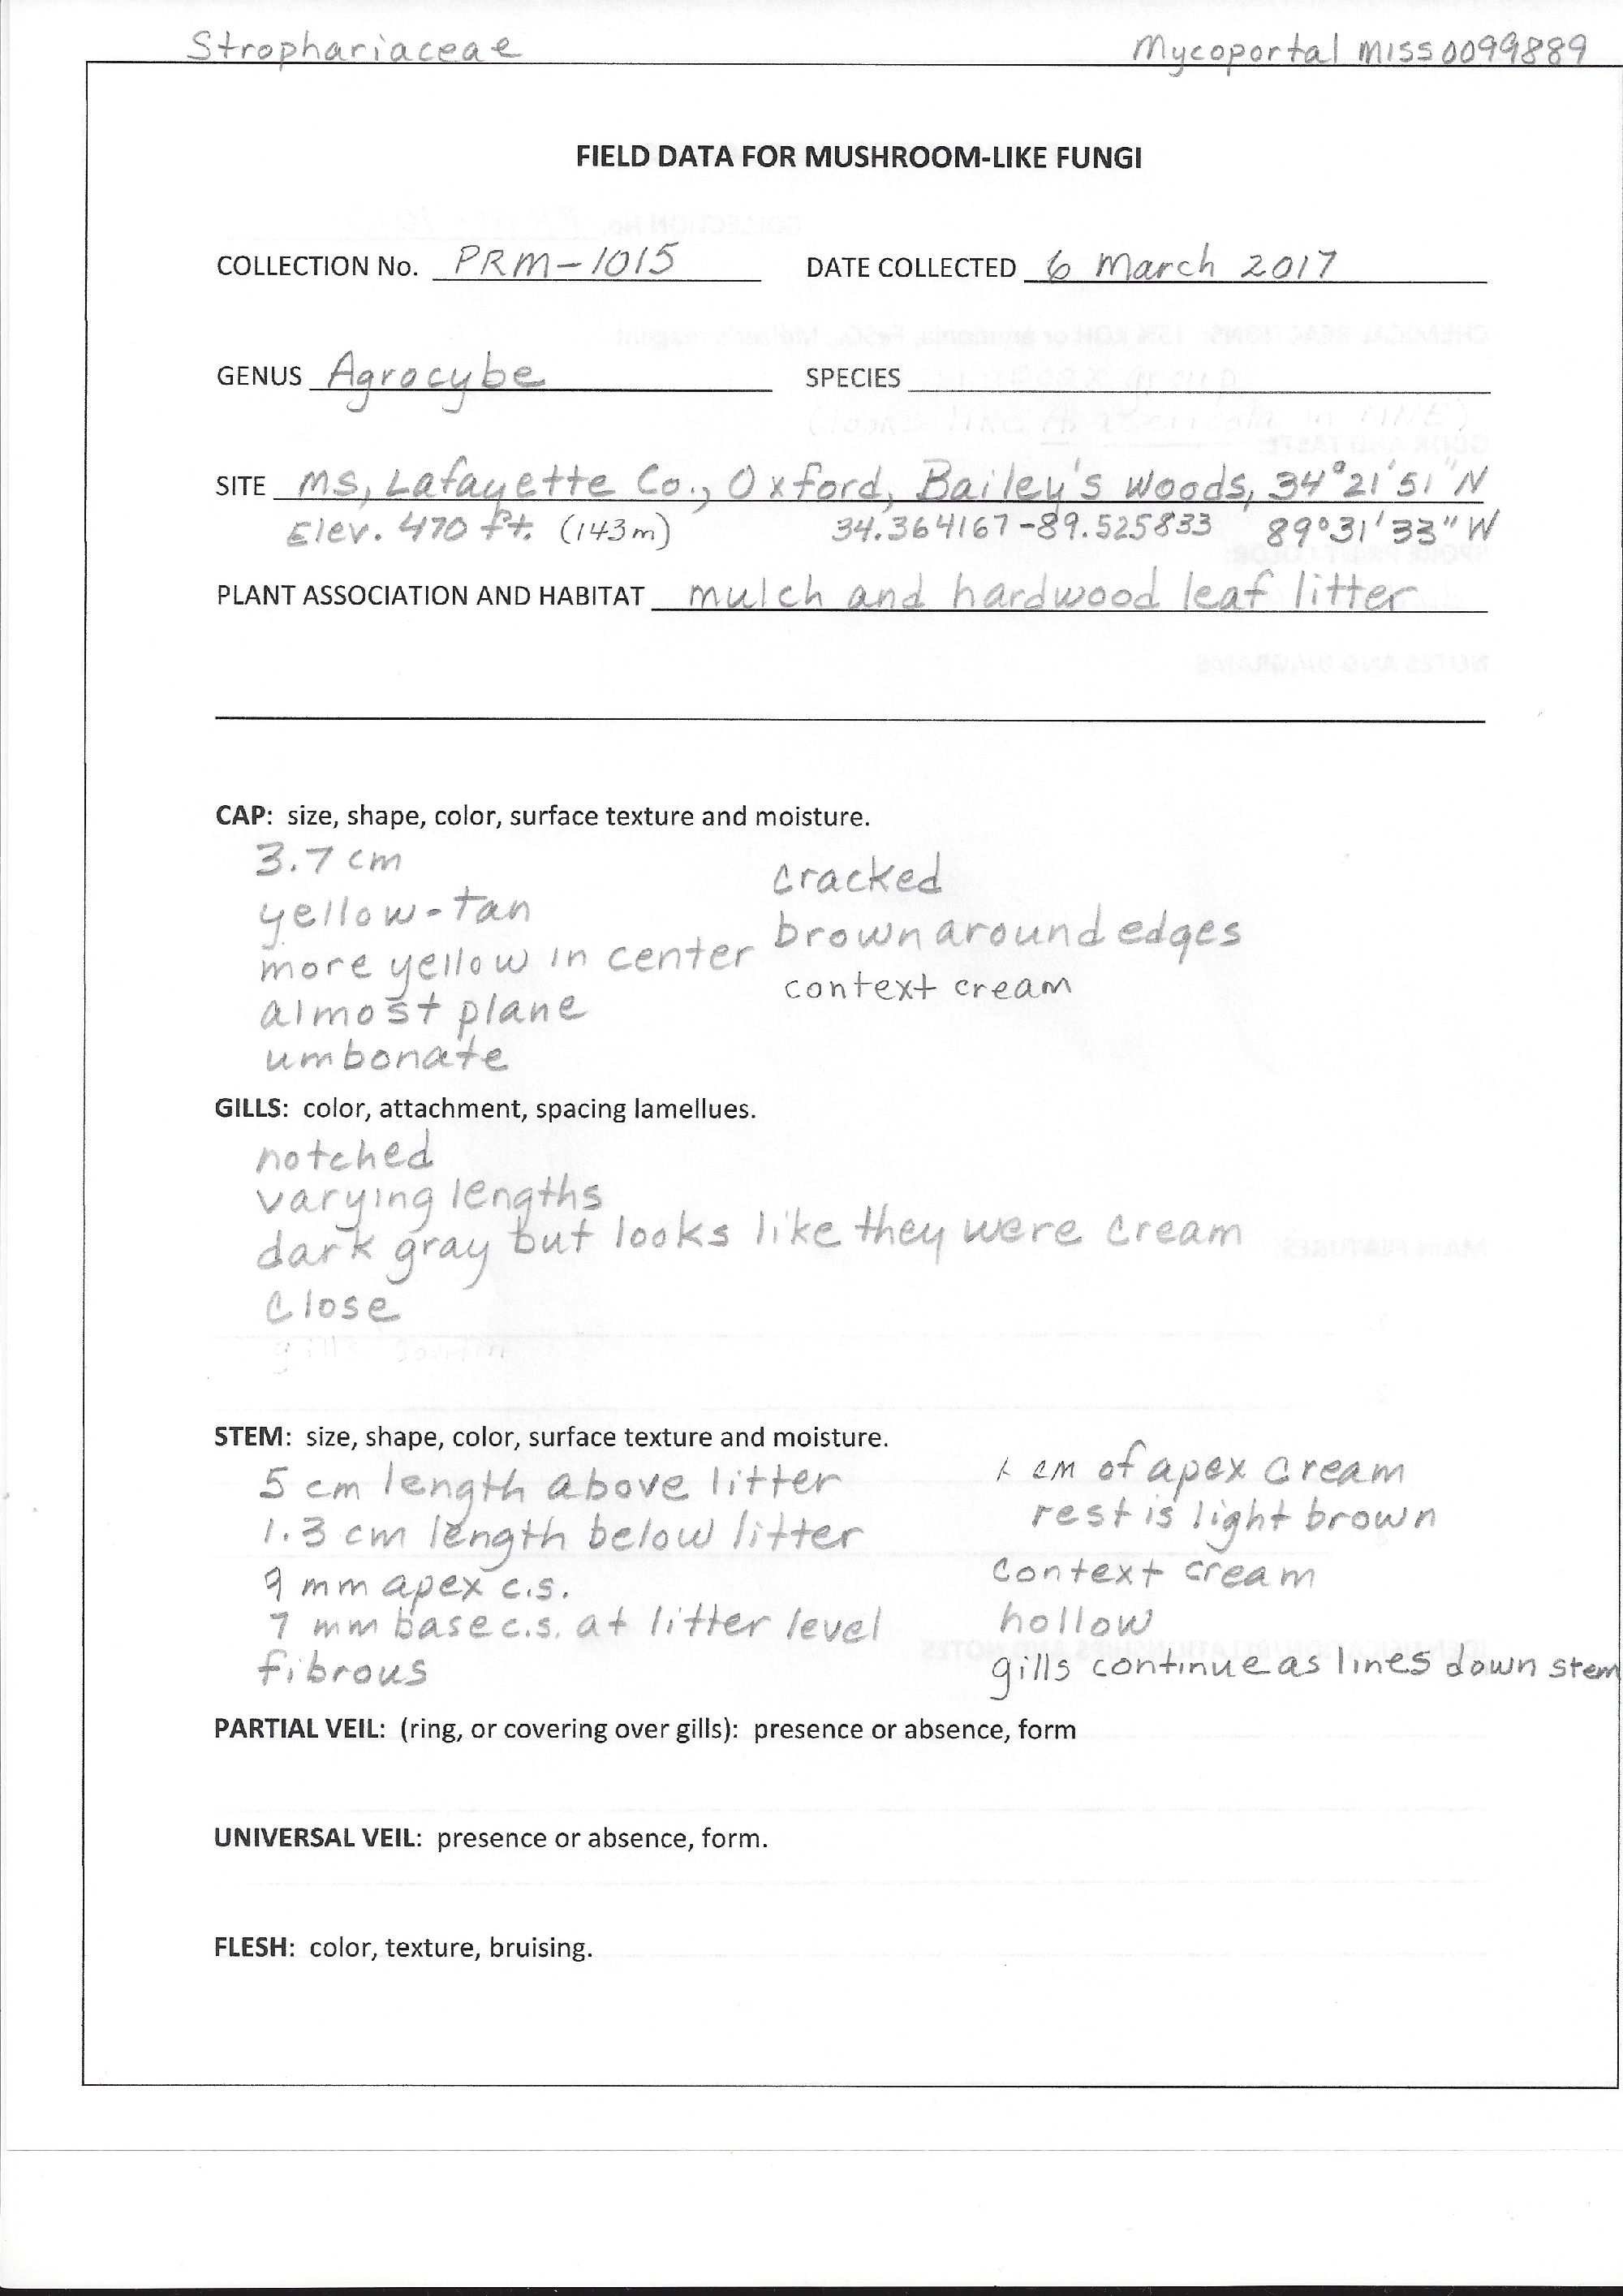 Strophariaceae Mycoportal MISS0099889
FIELD DATA FOR MUSHROOM-LIKE FUNGI
COLLECTION No. PRM-1015 DATE COLLECTED 6 March 2017
GENUS Agrocybe SPECIES
SITE MS, Lafayette Co., Oxford, Bailey's Woods, 34°21'51"N
Elev. 470 ft. (143m) 34.364167 -89.525833 89°31'33"W
PLANT ASSOCIATION AND HABITAT mulch and hardwood leaf litter
CAP: size, shape, color, surface texture and moisture.
3.7 cm
yellow-tan
more yellow in center
almost plane
umbonate
cracked
brown around edges
context cream
GILLS: color, attachment, spacing lamellues.
notched
varying lengths
dark gray but looks like they were cream
close
STEM: size, shape, color, surface texture and moisture.
5 cm length above litter
1.3 cm length below litter
9 mm apex c.s.
7 mm base c.s. at litter level
fibrous
1 cm of apex cream
rest is light brown
context cream
hollow
gills continue as lines down stem
PARTIAL VEIL: (ring, or covering over gills): presence or absence, form
UNIVERSAL VEIL: presence or absence, form.
FLESH: color, texture, bruising.